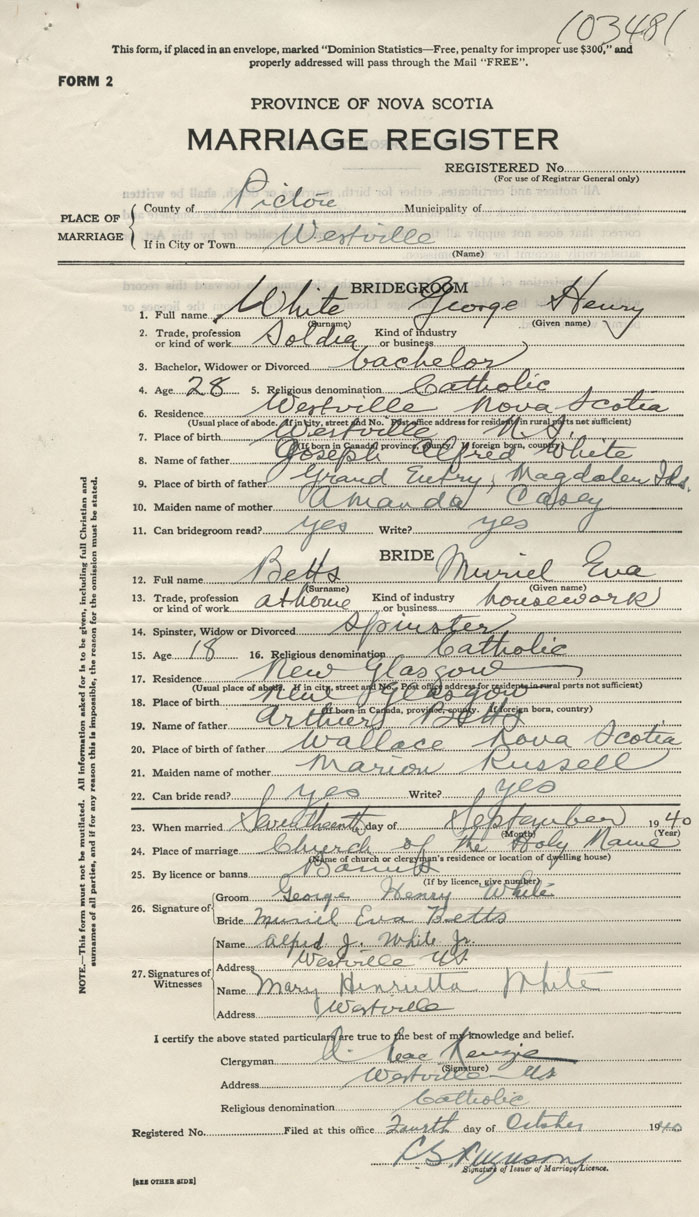 103481
This form, if placed in an envelope, marked "Dominion Statistics—Free, penalty for improper use $300," and
properly addressed will pass through the Mail "FREE".
FORM 2
PROVINCE OF NOVA SCOTIA
MARRIAGE REGISTER
REGISTERED No.
(For use of Registrar General only)
PLACE OF MARRIAGE
County of Pictou Municipality of
If in City or Town Westville
(Name)
BRIDEGROOM
1. Full name White George Henry
(Surname) (Given name)
2. Trade, profession or kind of work Soldier Kind of industry or business
3. Bachelor, Widower or Divorced bachelor
4. Age 28 5. Religious denomination Catholic
6. Residence Westville Nova Scotia
(Usual place of abode. If in city, street and No. Post office address for residents in rural parts not sufficient)
7. Place of birth Westville N.S.
(If born in Canada, province, county. If foreign born, country)
8. Name of father Joseph Alfred White
9. Place of birth of father Grand Entry, Magdalen Ids.
10. Maiden name of mother Amanda Casey
11. Can bridegroom read? yes Write? yes
BRIDE
12. Full name Betts Muriel Eva
(Surname) (Given name)
13. Trade, profession or kind of work at home Kind of industry or business housework
14. Spinster, Widow or Divorced Spinster
15. Age 18 16. Religious denomination Catholic
17. Residence New Glasgow
(Usual place of abode. If in city, street and No. Post office address for residents in rural parts not sufficient)
18. Place of birth New Glasgow
(If born in Canada, province, county. If foreign born, country)
19. Name of father Arthur Betts
20. Place of birth of father Wallace Nova Scotia
21. Maiden name of mother Marion Russell
22. Can bride read? yes Write? yes
23. When married Seventeenth day of September 1940
(Month) (Year)
24. Place of marriage Church of the Holy Name
(Name of church or clergyman's residence or location of dwelling house)
25. By licence or banns Banns
(If by licence, give number)
26. Signature of
Groom George Henry White
Bride Muriel Eva Betts
27. Signatures of Witnesses
Name Alfred J. White Jr.
Address Westville NS
Name Mary Henrietta White
Address Westville
I certify the above stated particulars are true to the best of my knowledge and belief.
Clergyman
(Signature)
Address Westville NS
Religious denomination Catholic
Registered No. Filed at this office Fourth day of October 1940
Signature of Issuer of Marriage Licence.
[SEE OTHER SIDE]
NOTE.—This form must not be mutilated. All information asked for is to be given, including full Christian and
surnames of all parties, and if for any reason this is impossible, the reason for the omission must be stated.